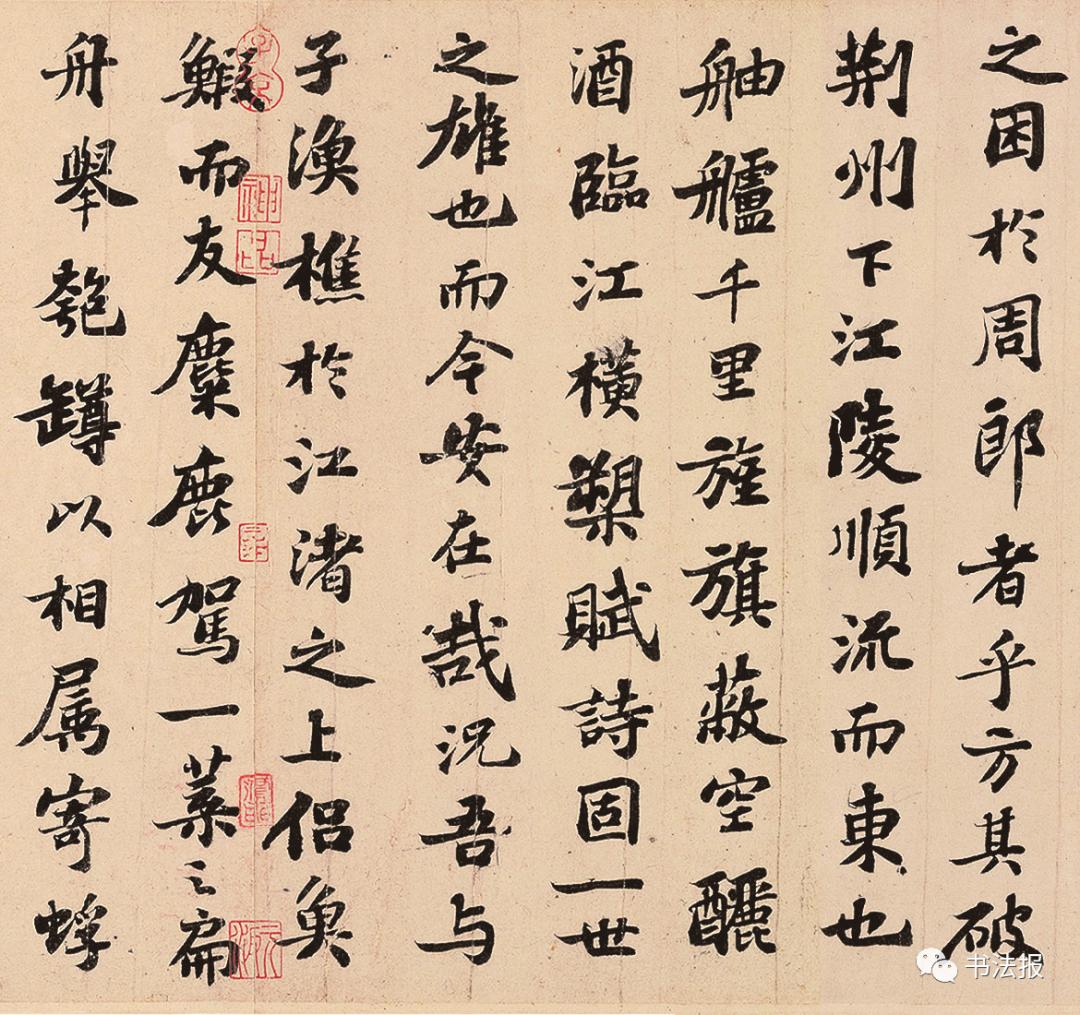 之困於周郎者乎方其破
荊州下江陵順流而東也
舳艫千里旌旗蔽空釃
酒臨江橫槊賦詩固一世
之雄也而今安在哉況吾与
子漁樵於江渚之上侶魚
鰕而友麋鹿駕一葉之扁
舟舉匏罇以相属寄蜉
子京
神品
书法报